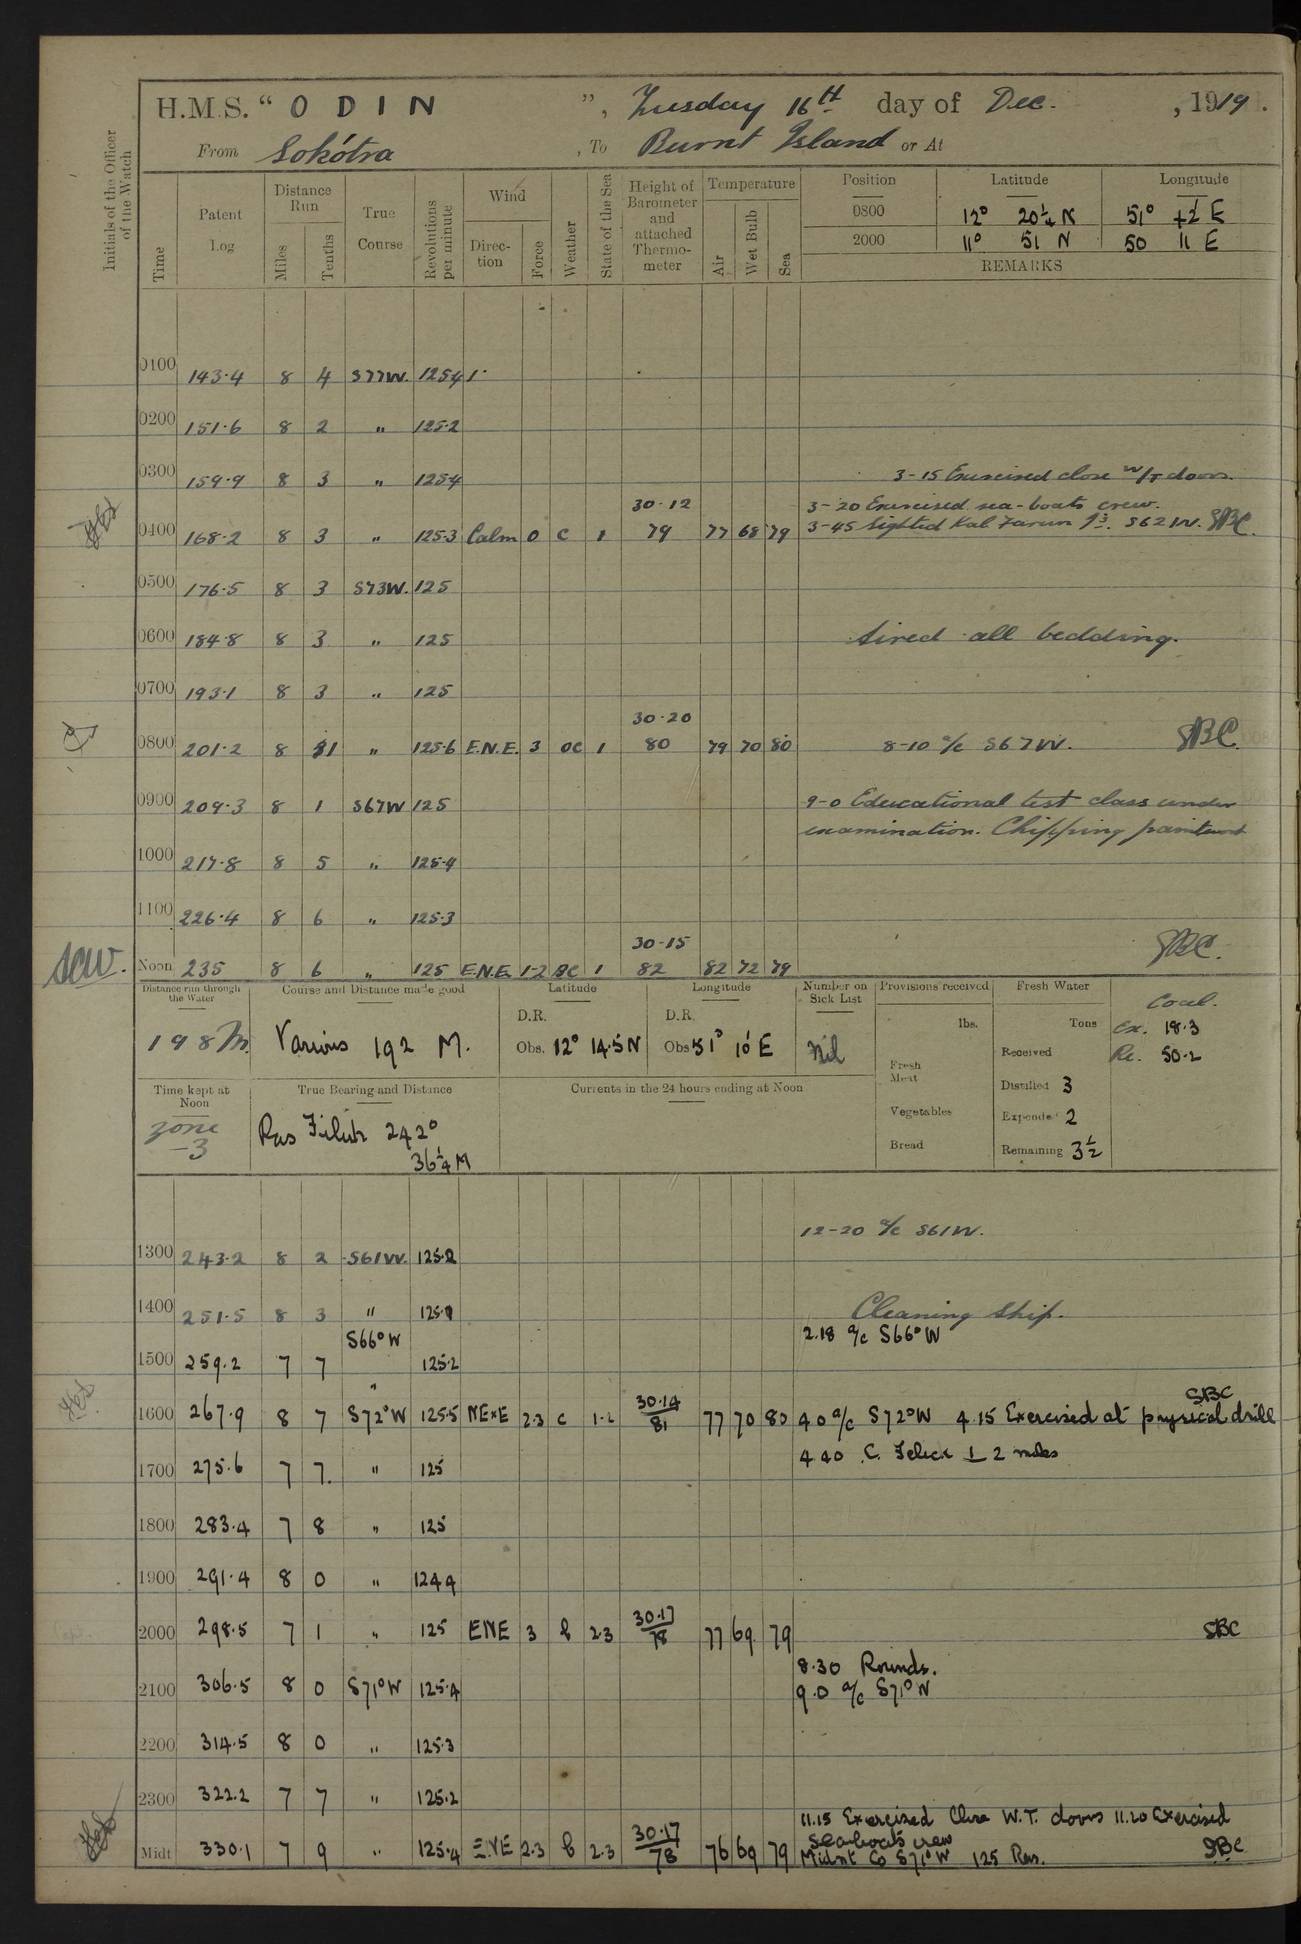 H.M.S. “ O D I N ”, Tuesday 16th day of Dec. , 1919.
From Sokótra , To Burnt Island or At
Initials of the Officer of the Watch
Time Patent Log Distance Run Miles Tenths True Course Revolutions per minute Wind Direc-tion Force Weather State of the Sea Height of Barometer and attached Thermo-meter Temperature Air Wet Bulb Sea Position Latitude Longitude
0800 12° 20¼ N 51° 42' E
2000 11° 51 N 50 11 E
REMARKS
0100 143·4 8 4 S77W. 125·4
0200 151·6 8 2 " 125·2
0300 159·9 8 3 " 125·4 3-15 Exercised close W/T doors.
30·12 3-20 Exercised sea-boats crew.
0400 168·2 8 3 " 125·3 Calm 0 C 1 79 77 68 79 3-45 Sighted Kal Farun Id. S62W. SBC.
0500 176·5 8 3 S73W. 125
0600 184·8 8 3 " 125 Aired all bedding.
0700 193·1 8 3 " 125
30·20
0800 201·2 8 1 " 125·6 E.N.E. 3 OC 1 80 79 70 80 8-10 a/c S67W. SBC.
0900 209·3 8 1 S67W 125 9-0 Educational test class under
examination. Chipping paintwork
1000 217·8 8 5 " 125·4
1100 226·4 8 6 " 125·3
30-15 SBC.
SCW. Noon 235 8 6 " 125 E.N.E. 1-2 BC 1 82 82 72 79
Distance run through the Water Course and Distance made good Latitude Longitude Number on Sick List Provisions received Fresh Water Coal.
198 M. Various 192 M. D.R. D.R. Nil lbs. Tons Ex. 18·3
Obs. 12° 14·5 N Obs 51° 10' E Received Re. 50·2
Fresh Meat
Time kept at Noon True Bearing and Distance Currents in the 24 hours ending at Noon Distilled 3
zone -3 Ras Filuk 242° Vegetables Expended 2
36¼ M Bread Remaining 3½
12-20 a/c S61W.
1300 243·2 8 2 S61W. 125·2
1400 251·5 8 3 " Cleaning Ship.
S66°W 2.18 a/c S66°W
1500 259.2 7 7 125·2
" SBC
1600 267.9 8 7 S72°W 125·5 NExE 2·3 C 1-2 30·14 81 77 70 80 4 0 a/c S72°W 4.15 Exercised at physical drill
4 40 C. Felick ⊥ 2 miles
1700 275.6 7 7. " 125
1800 283.4 7 8 " 125
1900 291.4 8 0 " 124 4
2000 298.5 7 1 " 125 ENE 3 b 2·3 30·17 78 77 69 79 SBC
8·30 Rounds.
2100 306.5 8 0 S71°W 125·4 9.0 a/c S71°W
2200 314.5 8 0 " 125·3
2300 322.2 7 7 " 125·2
11.15 Exercised Close W.T. doors 11.20 Exercised
Seaboats crew
Midt 330.1 7 9 " 125·4 ENE 2·3 b 2·3 30·17 78 76 69 79 Midnt Co S71°W 125 Rev. SBC